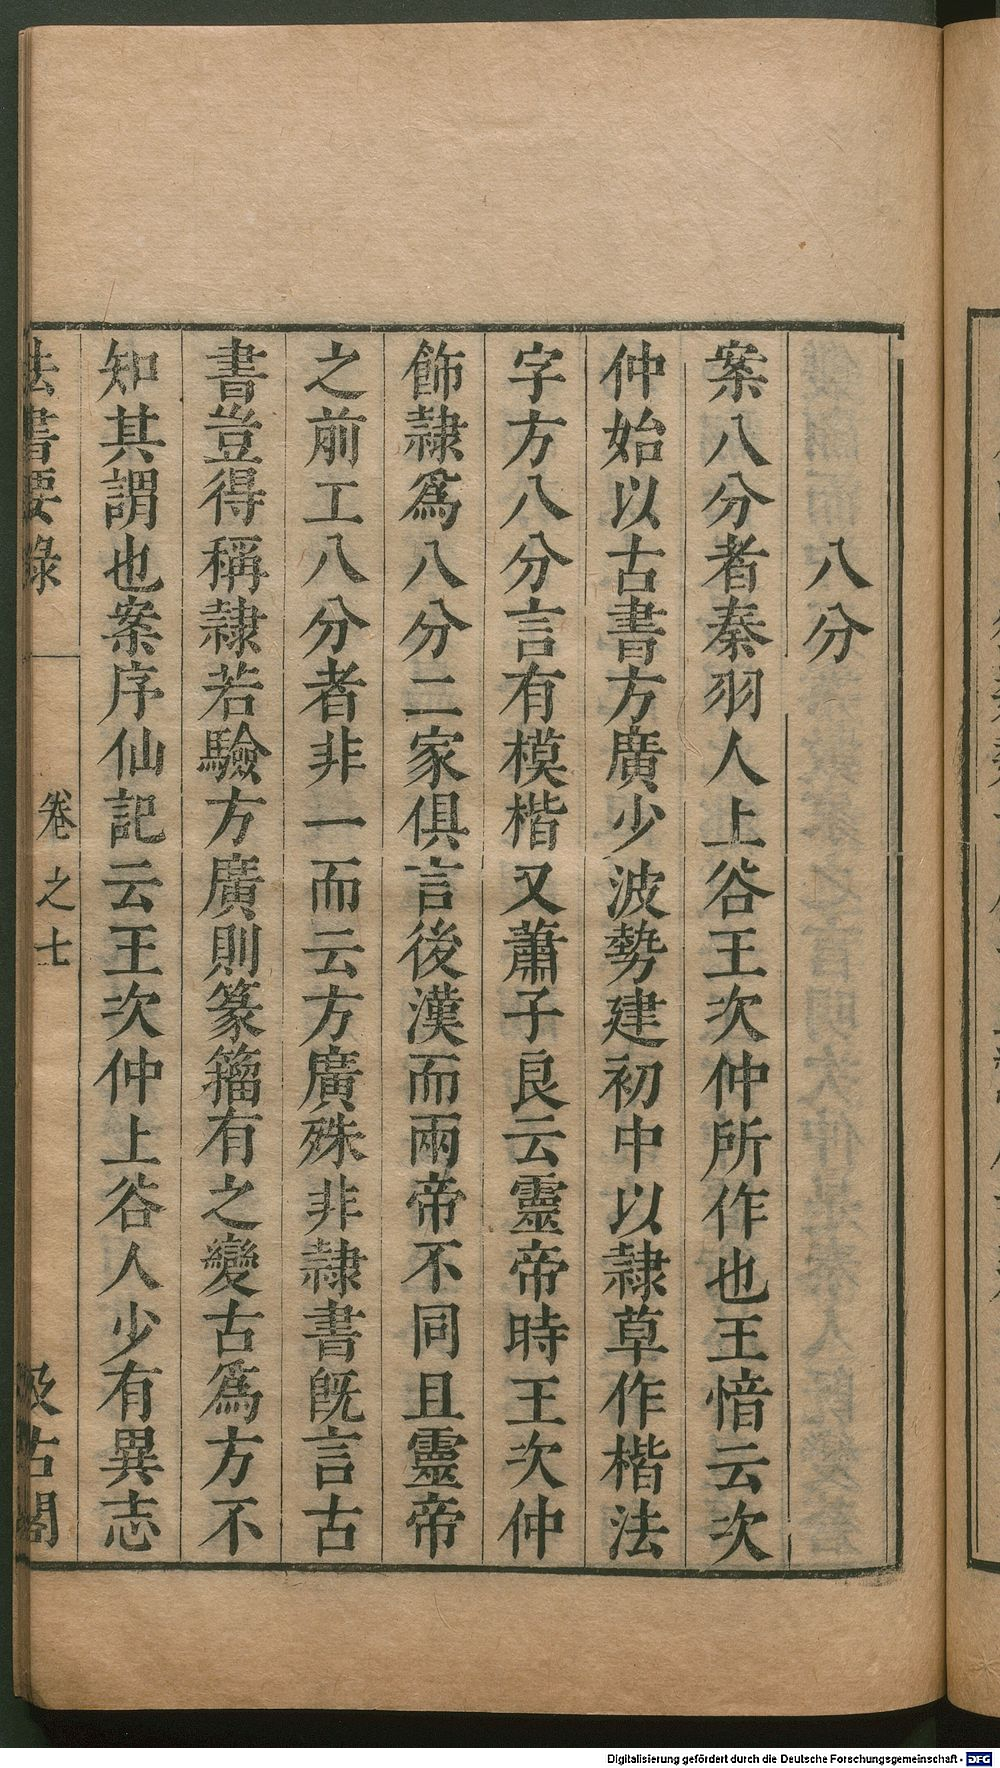 八分
案八分者秦羽人上谷王次仲所作也王愔云次
仲始以古書方廣少波勢建初中以隷草作楷法
字方八分言有模楷又蕭子良云靈帝時王次仲
飾隷爲八分二家俱言後漢而兩帝不同且靈帝
之前工八分者非一而云方廣殊非隷書旣言古
書豈得稱隷若驗方廣則篆籀有之變古爲方不
知其謂也案序仙記云王次仲上谷人少有異志
法書要錄 卷之七 汲古閣
Digitalisierung gefördert durch die Deutsche Forschungsgemeinschaft - DFG